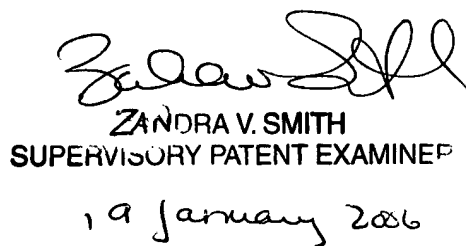 ZANDRA V. SMITH
SUPERVISORY PATENT EXAMINER
19 January 2006